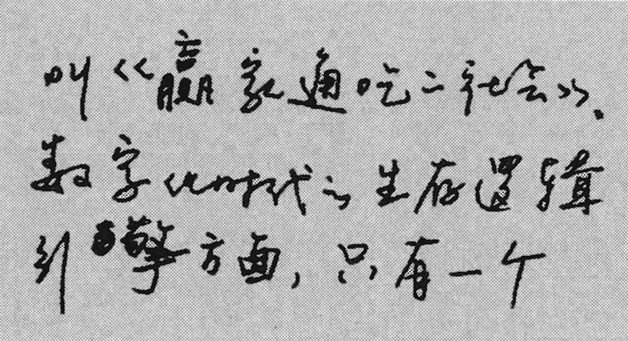 叫《赢家通吃之社会》.
数字化时代之生存逻辑
引擎方面,只有一个